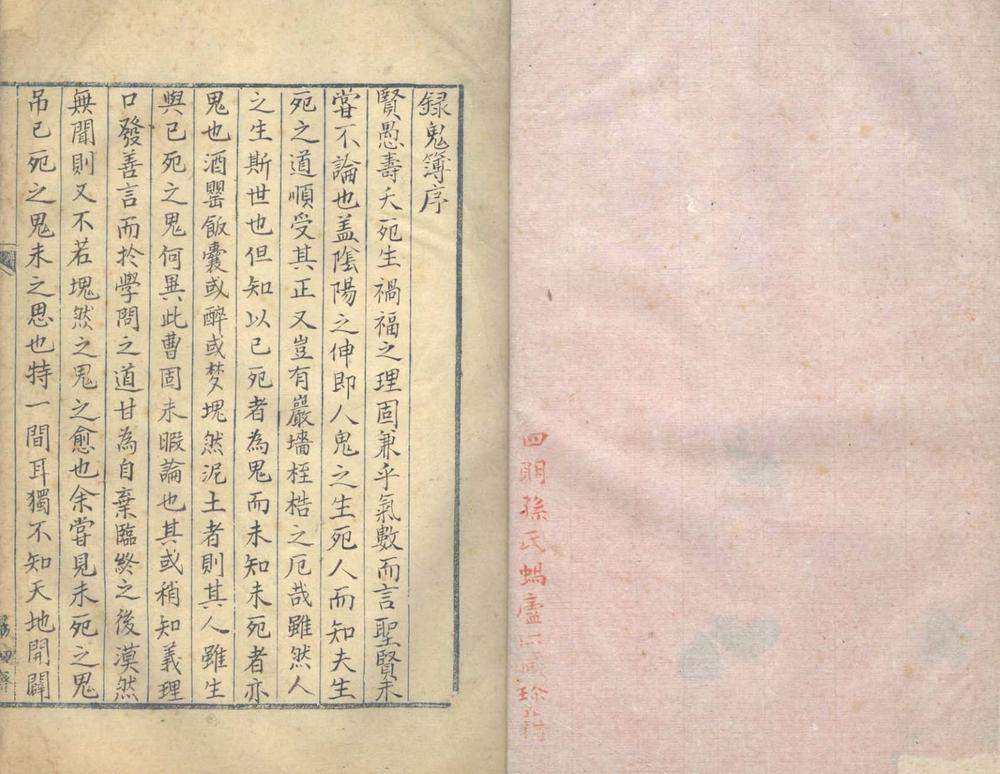 録鬼簿序
賢愚壽夭死生禍福之理固兼乎氣數而言聖賢未
甞不論也盖陰陽之伸即人鬼之生死人而知夫生
死之道順受其正又豈有巖墻桎梏之厄哉雖然人
之生斯世也但知以已死者為鬼而未知未死者亦
鬼也酒罌飯囊或醉或梦塊然泥土者則其人雖生
與已死之鬼何異此曹固未暇論也其或稍知義理
口發善言而於學問之道甘為自棄臨終之後漠然
無聞則又不若塊然之鬼之愈也余甞見未死之鬼
吊已死之鬼未之思也特一間耳獨不知天地開闢
四明孫氏蝸廬藏珍籍